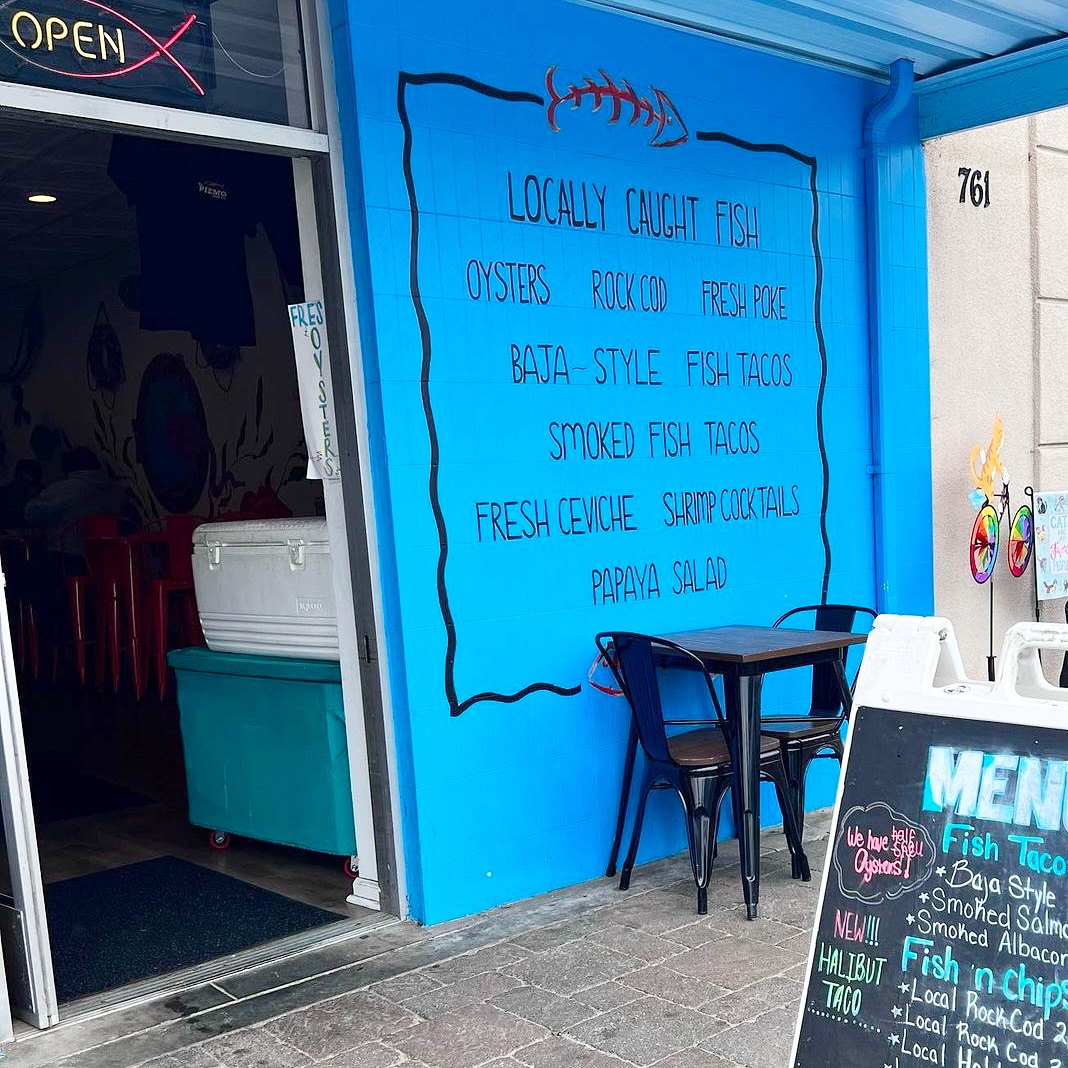 OPEN
PIEMO
FRES
OYSTERS
LOCALLY CAUGHT FISH
OYSTERS ROCK COD FRESH POKE
BAJA-STYLE FISH TACOS
SMOKED FISH TACOS
FRESH CEVICHE SHRIMP COCKTAILS
PAPAYA SALAD
761
IGLOO
CAT
MENU
We have half
shell
Oysters!
Fish Taco
*Baja Style
*Smoked Salmo
*Smoked Albacor
NEW!!!
HALIBUT
TACO
Fish 'n Chips
*Local Rock Cod 2
*Local Rock Cod 3
*Local Hal